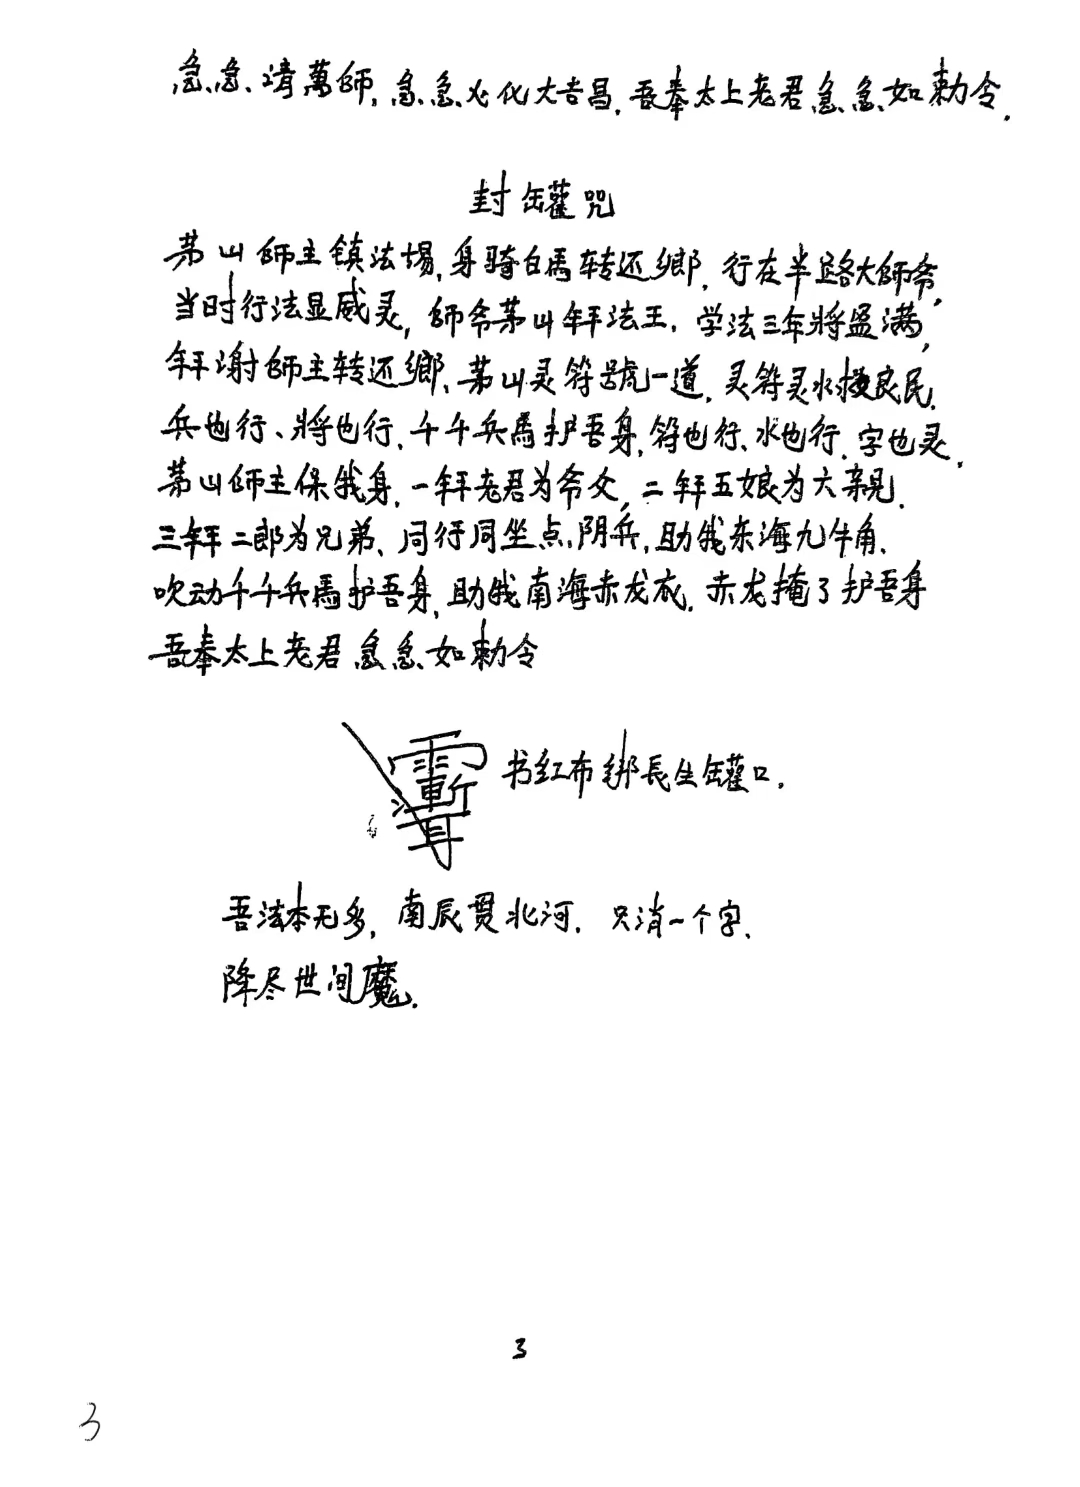 急急请萬師,急急火化大吉昌.吾奉太上老君急急如勅令.
封罐咒
茅山師主镇法場,身骑白馬转还鄉.行在半路大師爷,
当时行法显威灵,師爷茅山年法王.学法三年將盈满,
拜谢師主转还鄉.茅山灵符號一道.灵符灵水救良民.
兵也行、將也行.千千兵馬护吾身.符也行.水也行.字也灵.
茅山師主保我身.一拜老君为爷父,二拜五娘为六親.
三拜二郎为兄弟、同行同坐点阴兵,助我东海九牛角.
吹动千千兵馬护吾身,助我南海赤龙衣.赤龙掩了护吾身
吾奉太上老君急急如勅令
书红布绑長生罐口.
吾法本无多,南辰贯北河.只消一个字.
降尽世间魔.
3
3